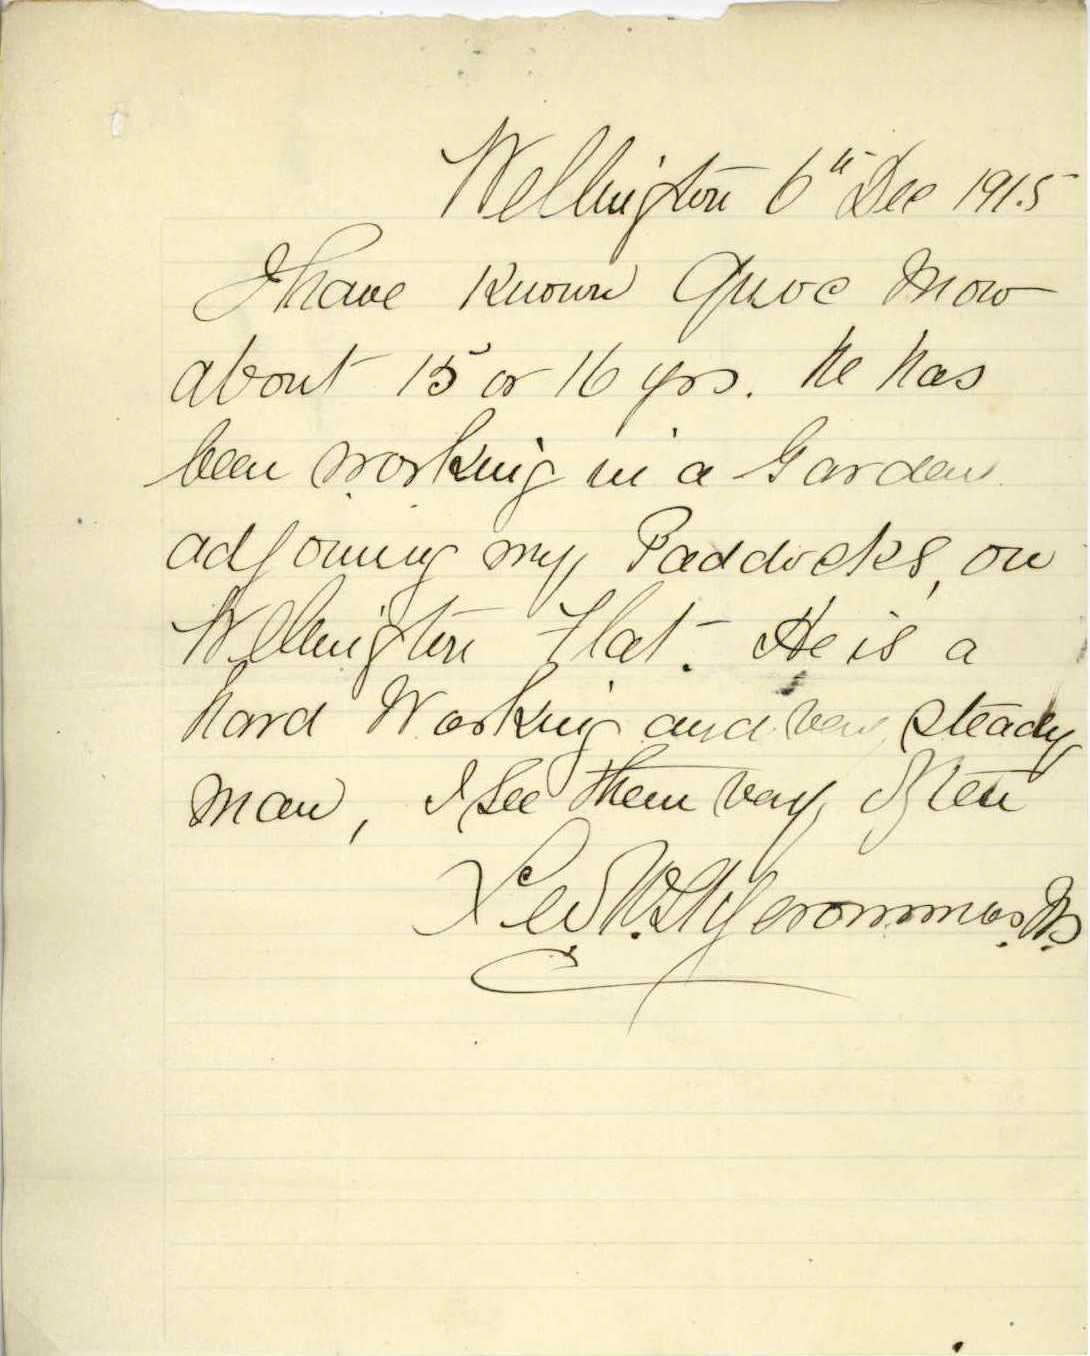 Wellington 6th Dec 1915
I have known Quoc Mow
about 15 or 16 yrs. he has
been working in a Garden
adjoining my Paddocks, on
Wellington Flat. He is a
hard Working and very steady
man, I See them very often